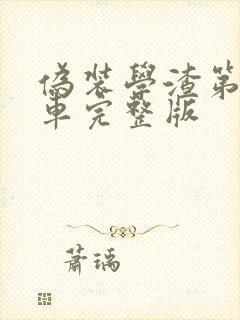 偽装學渣第
車完整版
蕭瑀